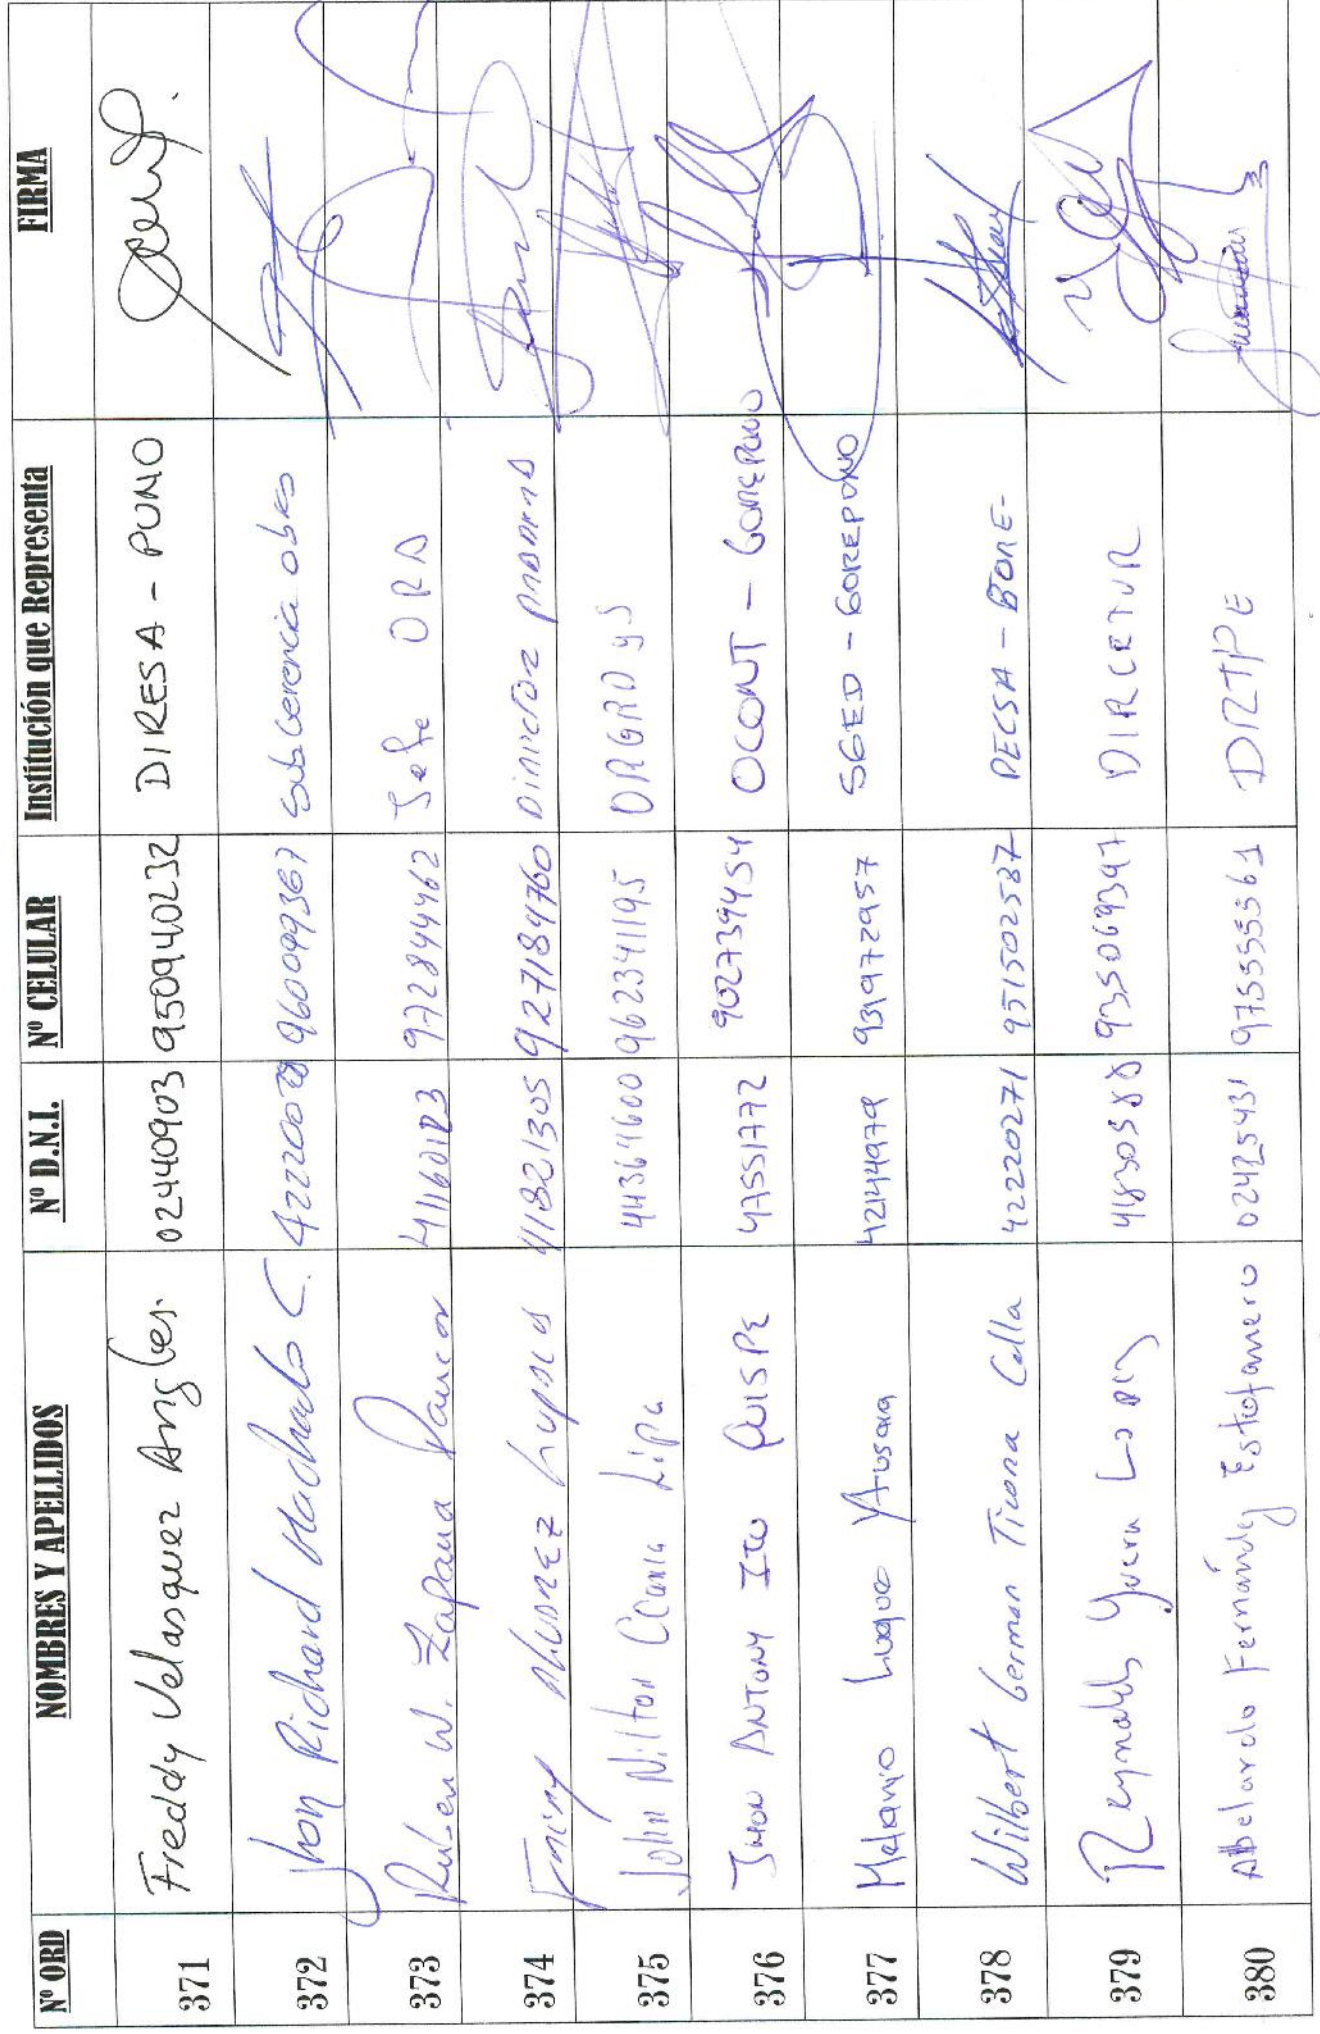 Nº ORD NOMBRES Y APELLIDOS Nº D.N.I. Nº CELULAR Institución que Representa FIRMA
371 Freddy Velasquez Angles. 02440903 950940232 DIRESA - PUNO
372 Jhon Richard Machado C. 42220070 960099367 SubGerencia obras
373 Ruben W. Zapana Paucar 972844462 Jefe ORA
374 41821305 927184760
375 John Nilton Ccama Lipa 44364600 962341195
376 JHON ANTONY ITO QUISPE 47551772 902739454 OCONT - GOREPUNO
377 Melanio Luque 42144979 939972957 SGED - GOREPUNO
378 Wilbert German Ticona Calla 42220271 951502587
379 41830588 935069397 DIRCETUR
380 Abelardo Fernández Estofanero 02425431 975555561 DRTPE